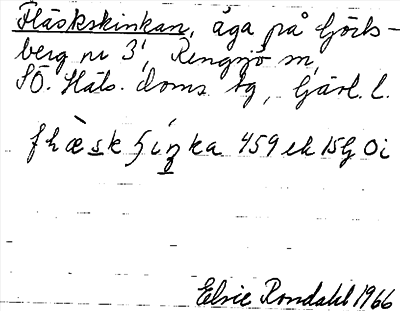 Fläskskinkan, äga på Görts-
berg nr 3¹, Rengsjö sn,
SÖ. Häls. doms. tg, Gävl. l.
459 ek 15G Oi
Elsie Rondahl 1966